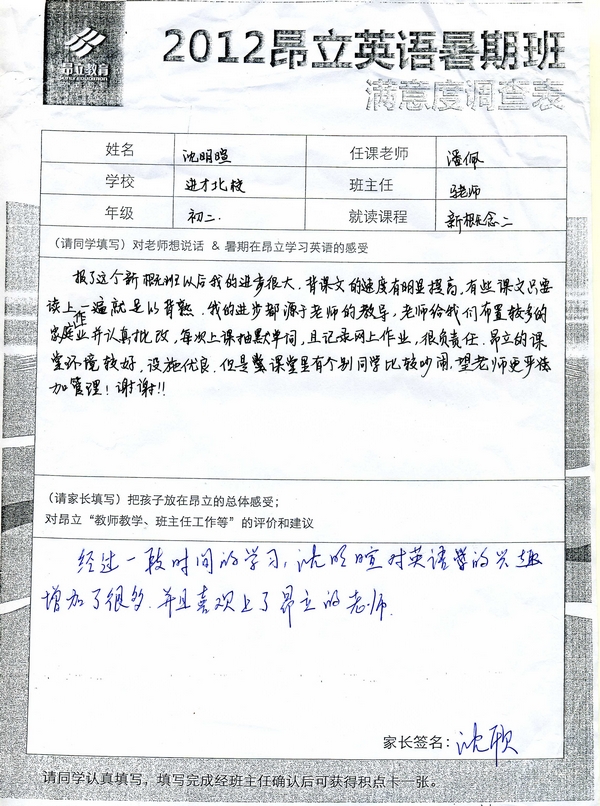 昂立教育
2012昂立英语暑期班
满意度调查表
姓名 沈明暄 任课老师 潘佩
学校 进才北校 班主任 马老师
年级 初二. 就读课程 新概念二
(请同学填写)对老师想说话 & 暑期在昂立学习英语的感受
报了这个新概念班以后我的进步很大.背课文的速度有明显提高,有些课文只要
读上一遍就足以背熟.我的进步都源于老师的教导,老师给我们布置较多的
家庭作业并认真批改,每次上课抽默单词,且记录网上作业,很负责任.昂立的课
堂环境较好,设施优良.但是课堂里有个别同学比较吵闹,望老师更严格
加管理!谢谢!!
(请家长填写)把孩子放在昂立的总体感受;
对昂立“教师教学、班主任工作等”的评价和建议
经过一段时间的学习,沈明暄对英语学的兴趣
增加了很多.并且喜欢上了昂立的老师.
家长签名:沈
请同学认真填写，填写完成经班主任确认后可获得积点卡一张。